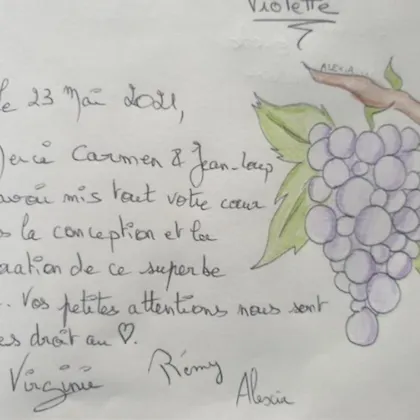 Violette
ALEXIA
Le 23 Mai 2021,
Merci Carmen & Jean-Loup
avoir mis tout votre cœur
la conception et la
ration de ce superbe
Vos petites attentions nous sont
droit au ♡.
Virginie Rémy
Alexia